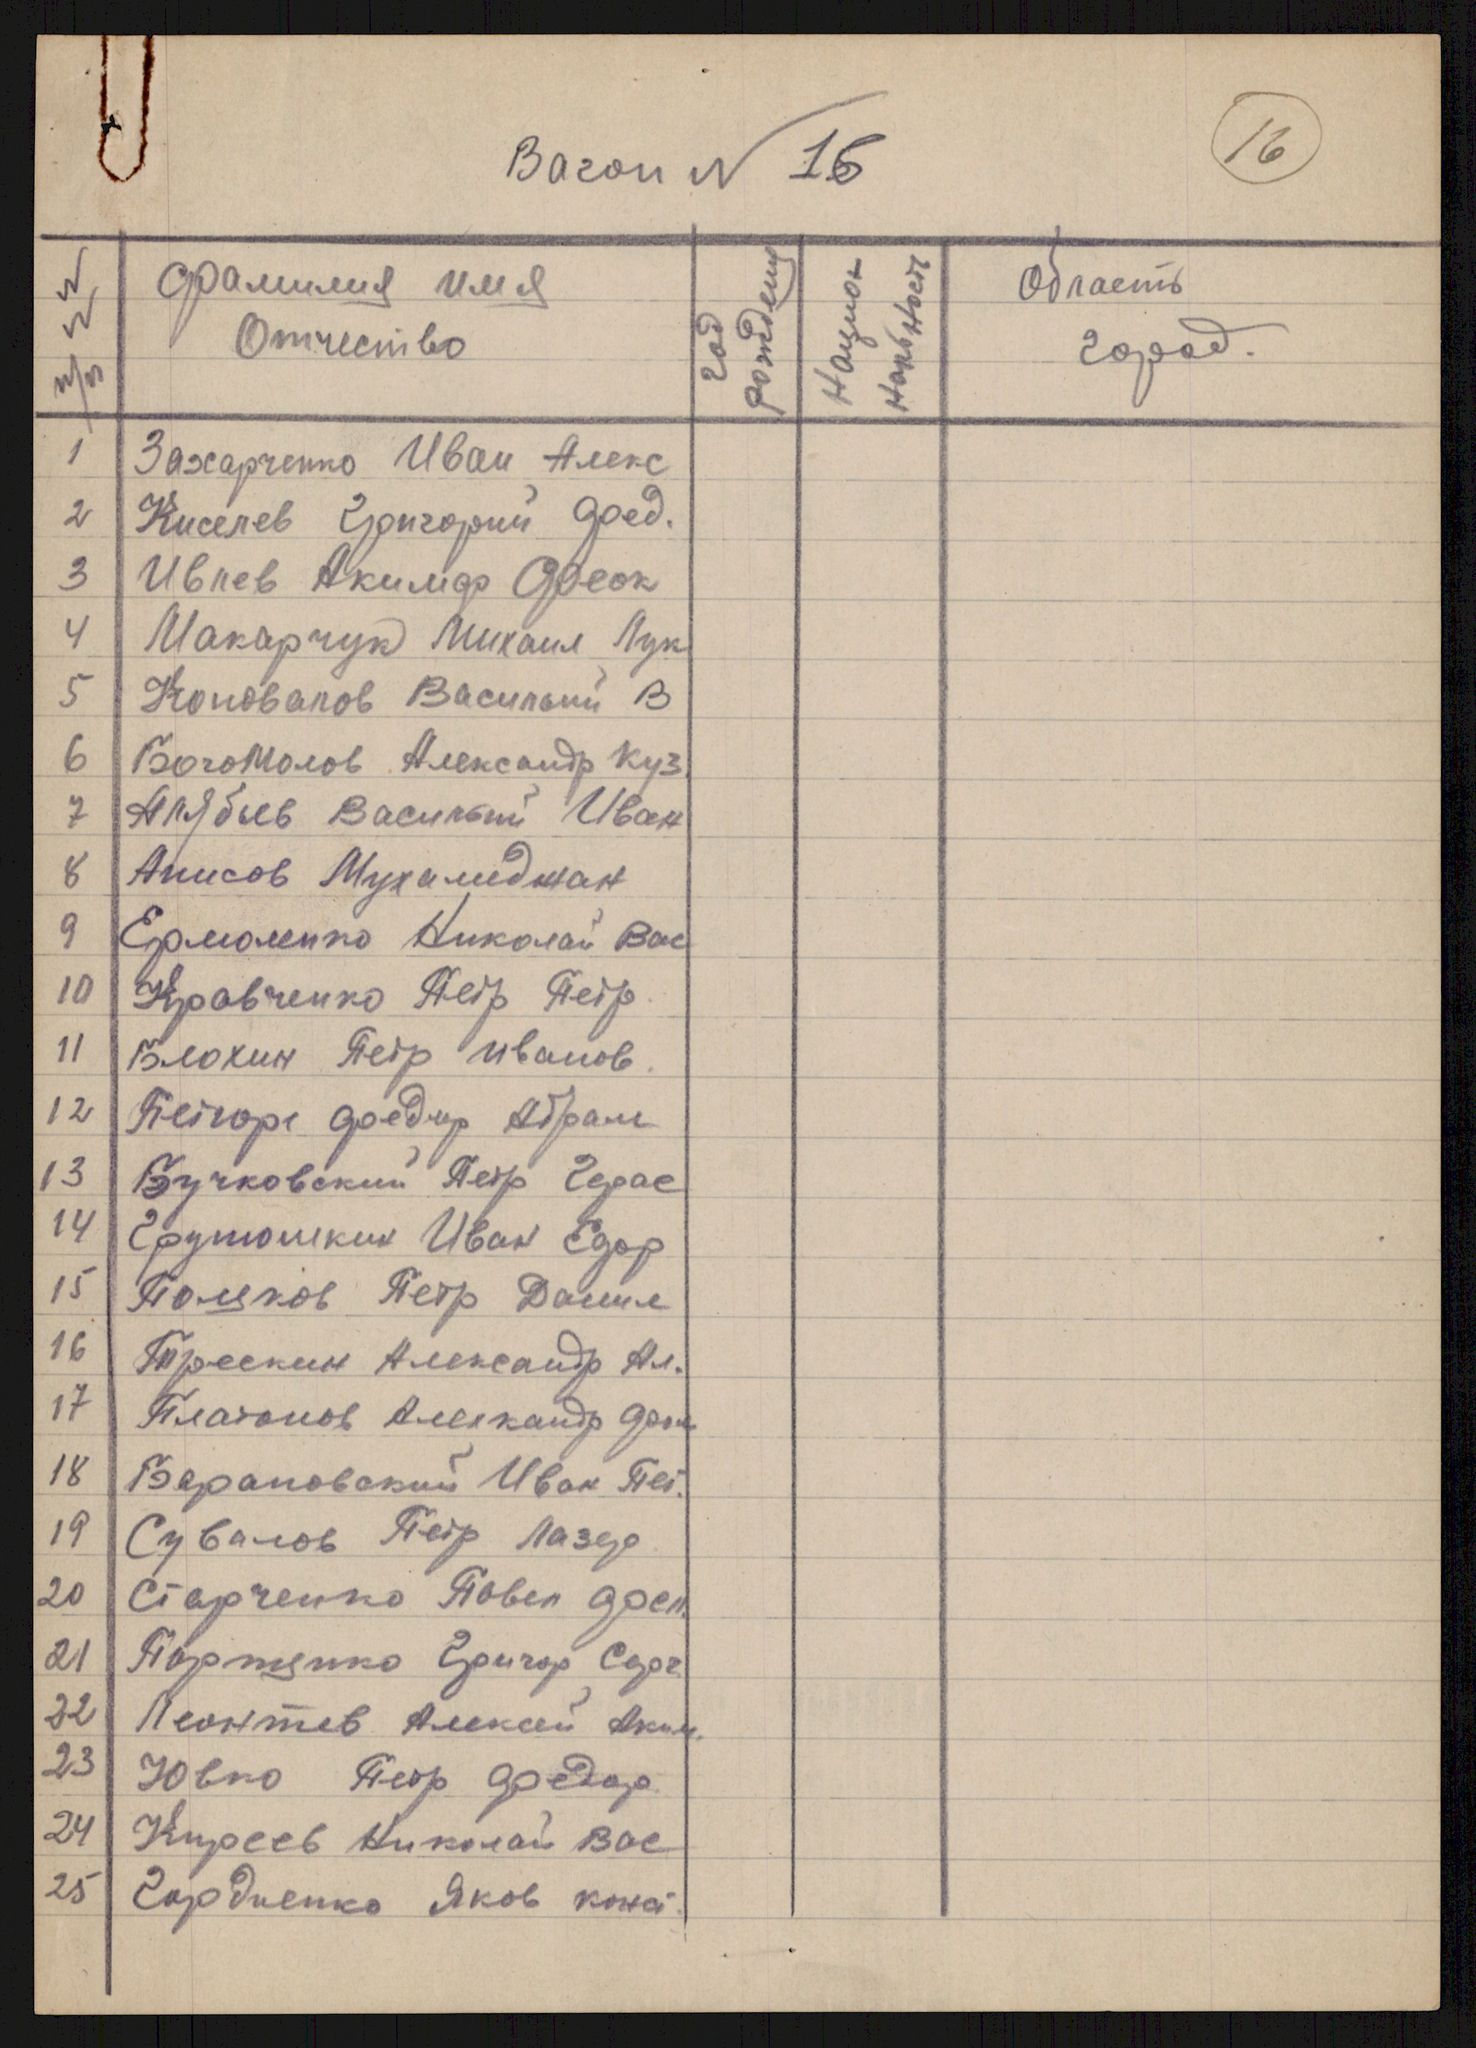 16
Вагон N 16
№ №
п/п
Фамилия имя
Отчество
Год
рождения
Национ
нальность
Область
город.
1 Захарченко Иван Алекс
2 Киселев Григорий Фед.
3 Ивлев Акимф Феок
4 Макарчук Михаил Лук
5 Коновалов Васильий В
6 Богомолов Александр Куз.
7 Алябьев Васильий Иван
8 Анисов Мухамеджан
9 Ермоленко Николай Вас
10 Кравченко Петр Петр.
11 Блохин Петр Иванов.
12 Федор Абрам
13 Бучковский Петр Герас
14 Грутюшкин Иван Егор
15 Поляков Петр Данил
16 Трескин Александр Ал.
17 Платонов Александр
18 Барановский Иван Пет.
19 Сувалов Петр Лазар
20 Старченко Павел
21 Григор Серг.
22 Леонтев Алексей Аким.
23 Ювко Петр Федор.
24 Киреев Николай Вас
25 Гордиенко Яков конст.